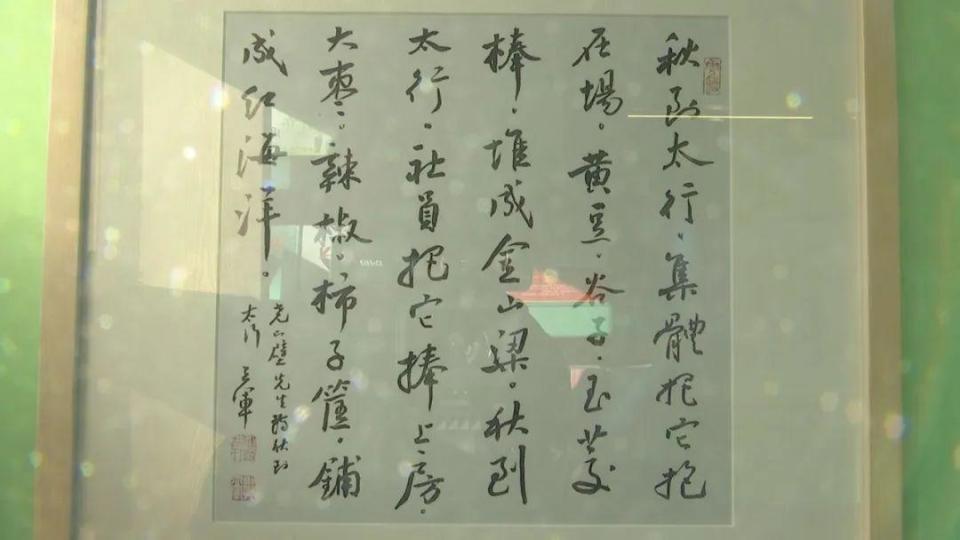 秋到太行，集體把它抱
在場。黄豆、谷子、玉茭
棒，堆成金山梁。秋到
太行，社員把它捧上房，
大枣、辣椒、柿子筐，鋪
成红海洋。
尧山壁先生詩秋到
太行 王軍